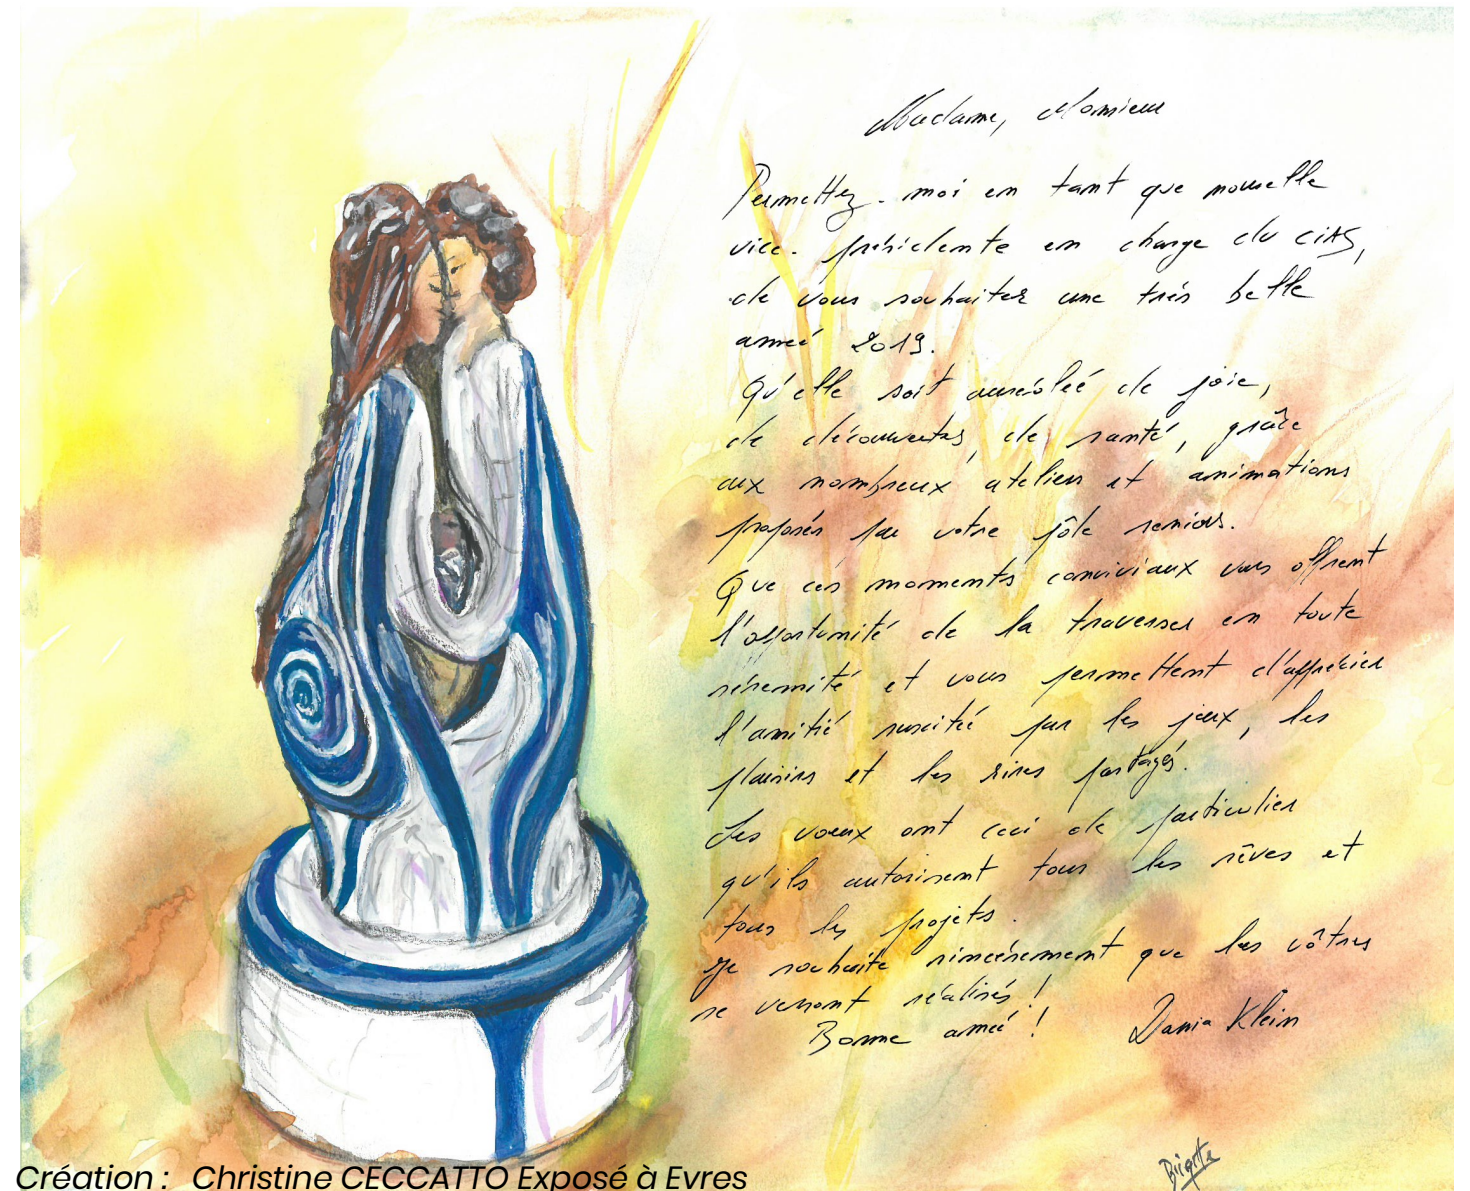 Madame, Monsieur
Permettez-moi en tant que nouvelle
vice-présidente en charge du CIAS,
de vous souhaiter une très belle
année 2019.
Qu'elle soit auréolée de joie,
de découvertes, de santé, grâce
aux nombreux ateliers et animations
proposés par votre pôle seniors.
Que ces moments conviviaux vous offrent
l'opportunité de la traverser en toute
sérénité et vous permettent d'apprécier
l'amitié suscitée par les jeux, les
plaisirs et les rires partagés.
Les voeux ont ceci de particulier
qu'ils autorisent tous les rêves et
tous les projets.
Je souhaite sincèrement que les vôtres
se verront réalisés !
Bonne année ! Dania Klein
Brigitte
Création : Christine CECCATTO Exposé à Evres